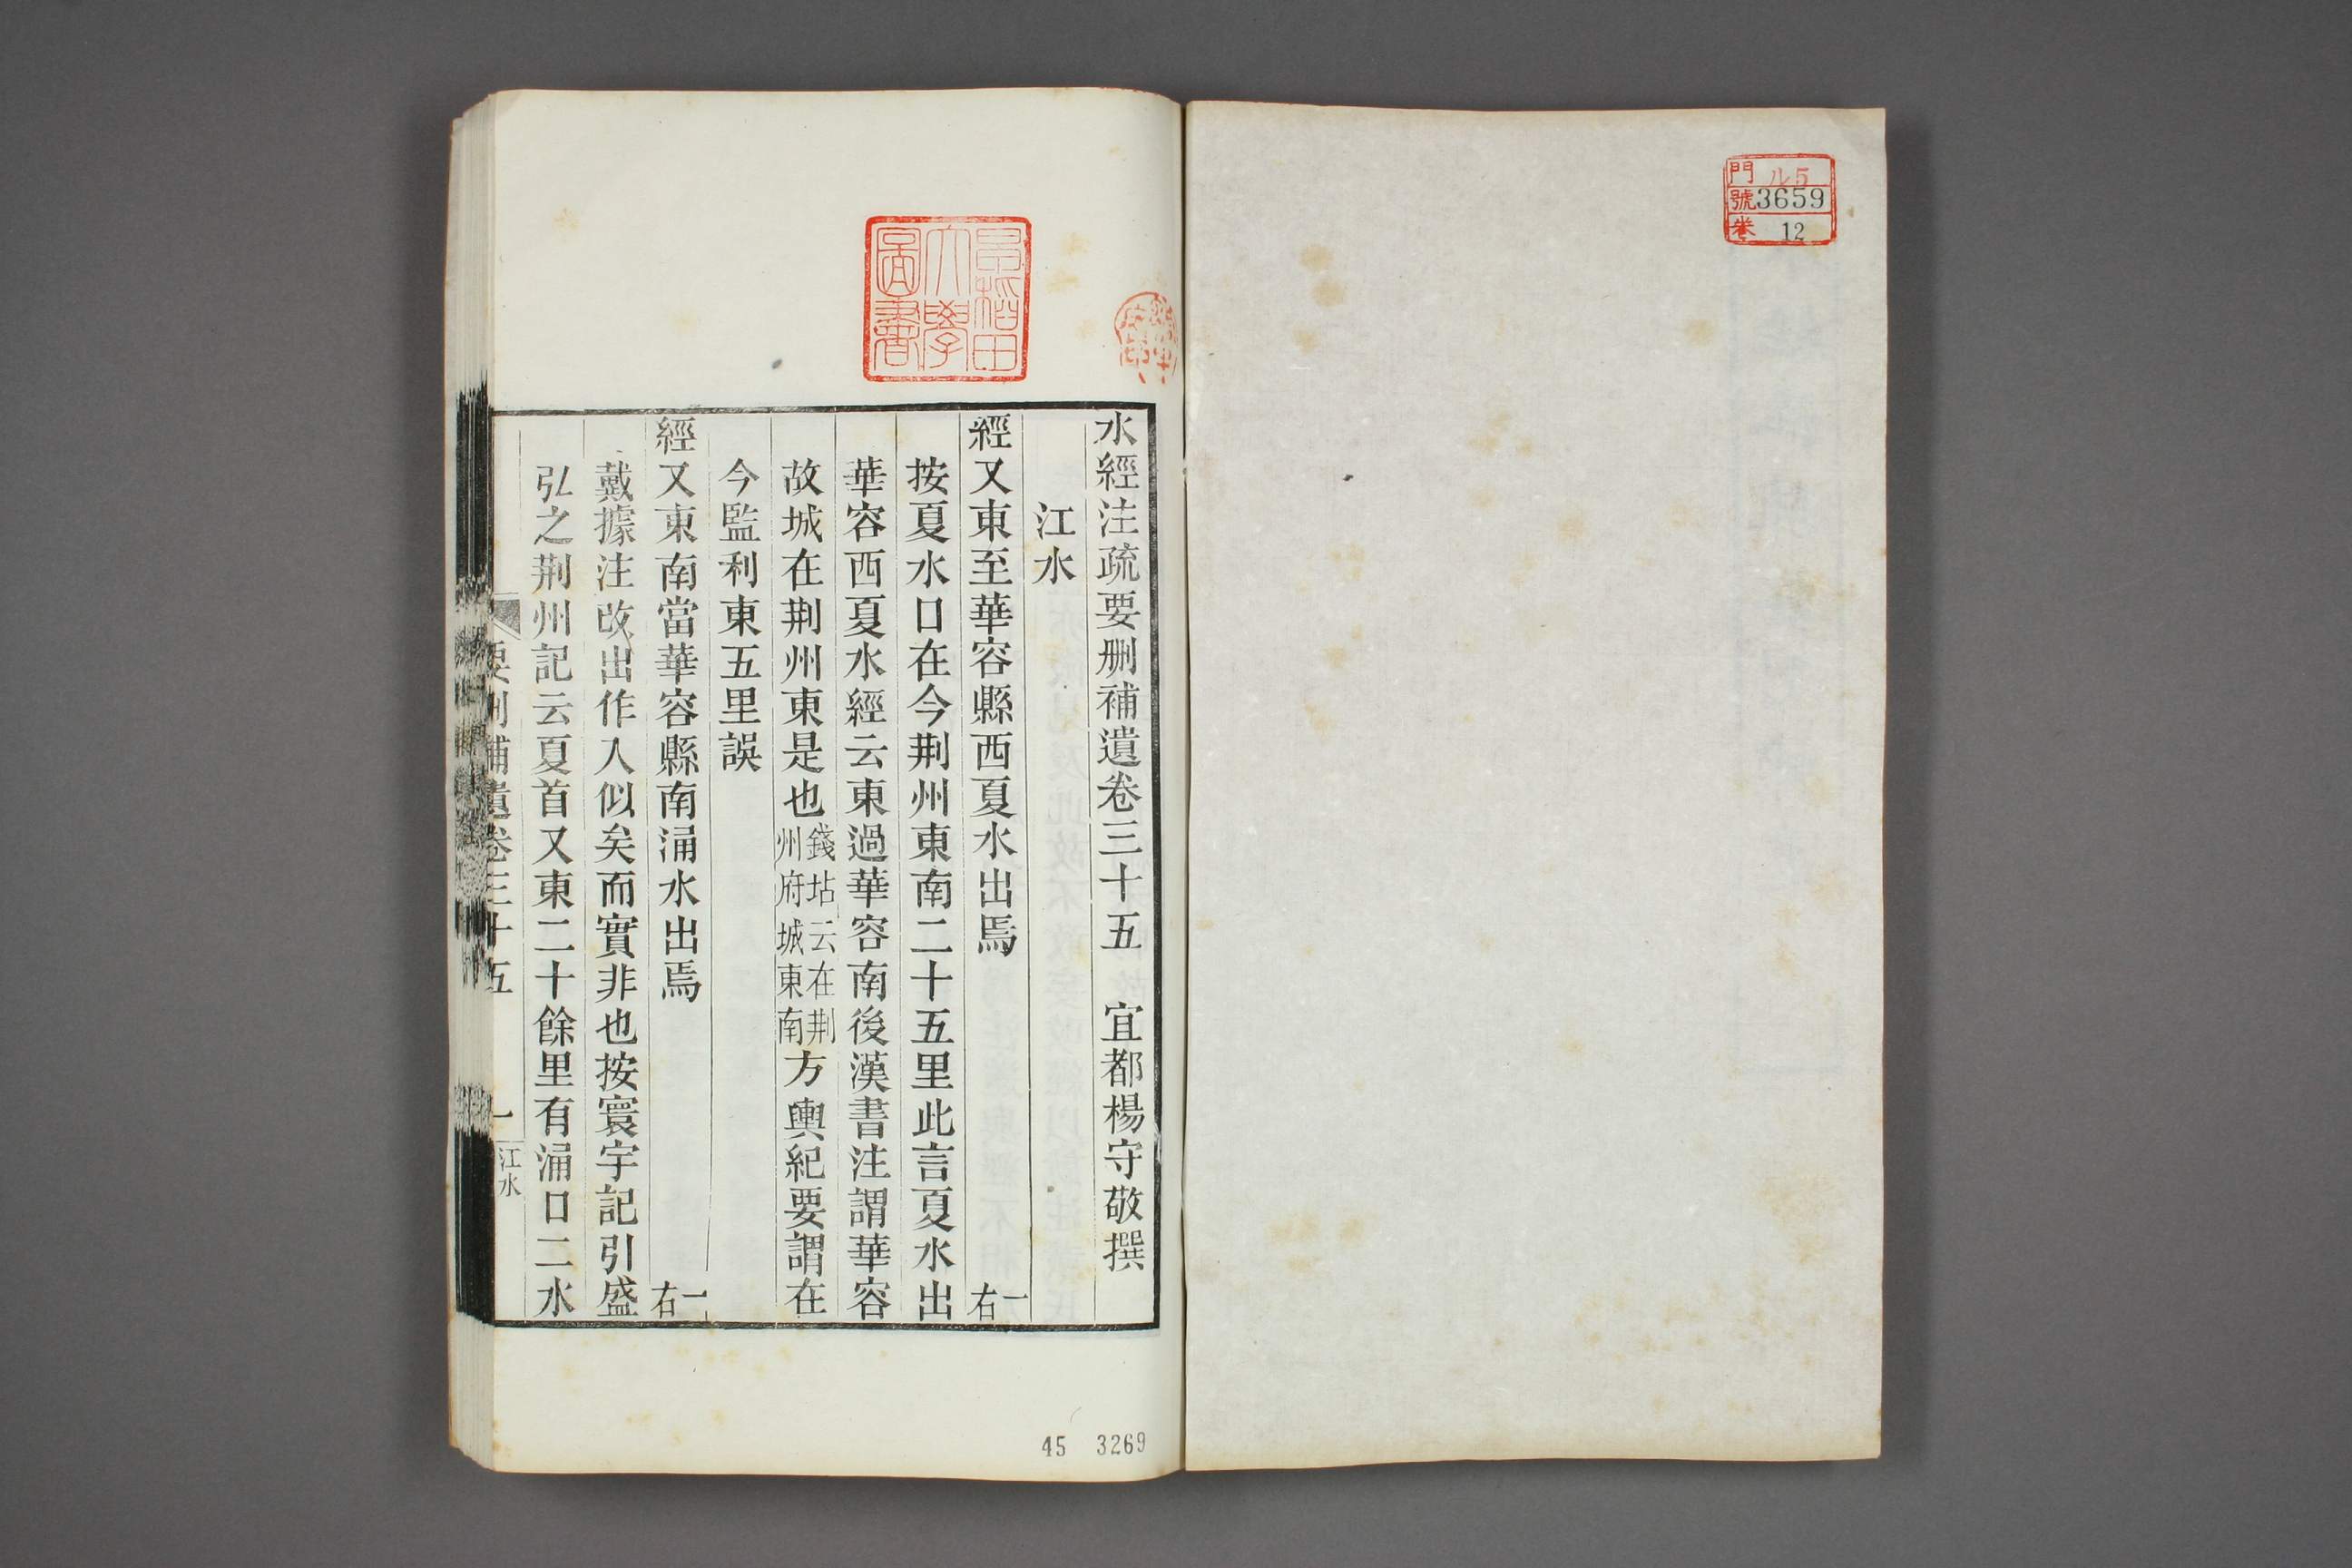 門 ル5
號 3659
卷 12
水經注疏要刪補遺卷三十五 宜都楊守敬撰
江水
經又東至華容縣西夏水出焉 一右
按夏水口在今荆州東南二十五里此言夏水出
華容西夏水經云東過華容南後漢書注謂華容
故城在荆州東是也錢坫云在荆州府城東南方輿紀要謂在
今監利東五里誤
經又東南當華容縣南涌水出焉 一右
戴據注改出作入似矣而實非也按寰宇記引盛
弘之荆州記云夏首又東二十餘里有涌口二水
要刪補遺卷三十五 一 江水
早稻田
大學
圖書
45 3269